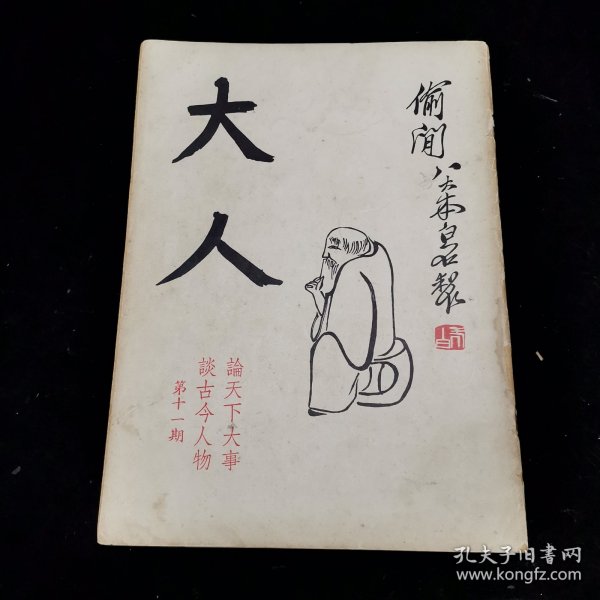 大人
偷閒
論天下大事
談古今人物
第十一期
孔夫子旧书网
www.kongfz.com